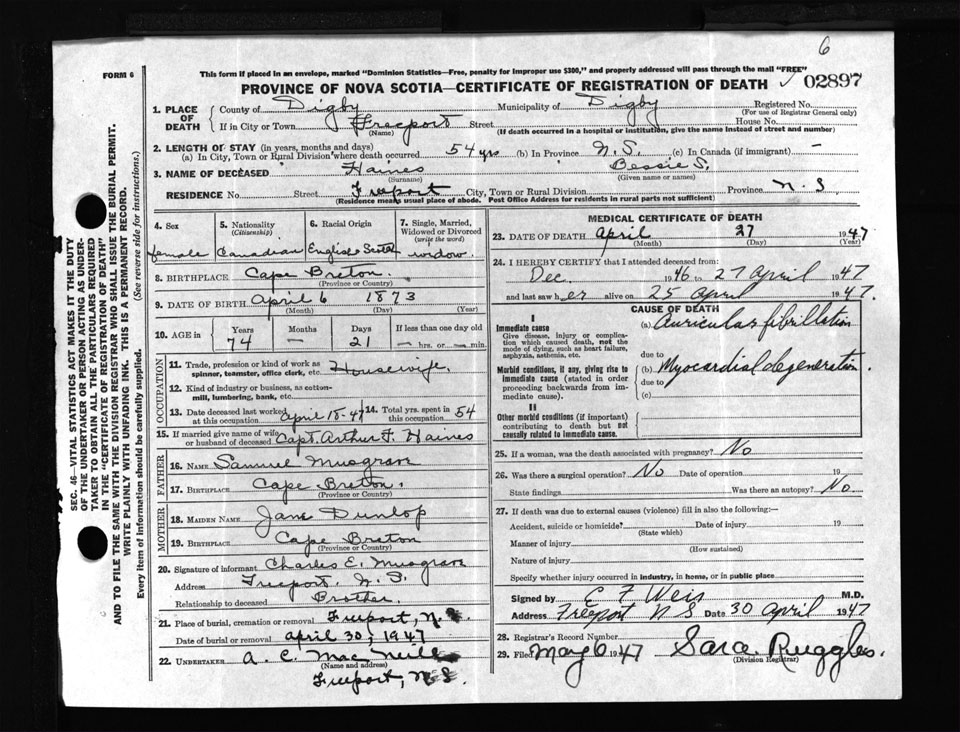 6
FORM 6
This form if placed in an envelope, marked "Dominion Statistics—Free, penalty for improper use $300," and properly addressed will pass through the mail "FREE"
PROVINCE OF NOVA SCOTIA—CERTIFICATE OF REGISTRATION OF DEATH
02897
1. PLACE OF DEATH
County of Digby Municipality of Digby Registered No.
(For use of Registrar General only)
If in City or Town Freeport Street House No.
(Name) (If death occurred in a hospital or institution, give the name instead of street and number)
2. LENGTH OF STAY (in years, months and days)
(a) In City, Town or Rural Division where death occurred 54 yrs (b) In Province N.S. (c) In Canada (if immigrant) —
3. NAME OF DECEASED Haines Bessie S.
(Surname) (Given name or names)
RESIDENCE No. Street Freeport City, Town or Rural Division Province N.S
(Residence means usual place of abode. Post Office Address for residents in rural parts not sufficient)
4. Sex 5. Nationality (Citizenship) 6. Racial Origin 7. Single, Married, Widowed or Divorced (write the word)
female Canadian English Scotch widow
8. BIRTHPLACE Cape Breton.
(Province or Country)
9. DATE OF BIRTH April 6 1873
(Month) (Day) (Year)
10. AGE in Years Months Days If less than one day old
74 — 21 — hrs. or — min.
OCCUPATION
11. Trade, profession or kind of work as spinner, teamster, office clerk, etc. Housewife.
12. Kind of industry or business, as cotton-mill, lumbering, bank, etc.
13. Date deceased last worked at this occupation April 15-47 14. Total yrs. spent in this occupation 54
15. If married give name of wife or husband of deceased Capt. Arthur F. Haines
FATHER
16. NAME Samuel Musgrave
17. BIRTHPLACE Cape Breton.
(Province or Country)
MOTHER
18. MAIDEN NAME Jane Dunlop
19. BIRTHPLACE Cape Breton
(Province or Country)
20. Signature of informant Charles E. Musgrave
Address Freeport. N.S.
Relationship to deceased Brother.
21. Place of burial, cremation or removal Freeport, N.S.
Date of burial or removal April 30, 1947
22. UNDERTAKER A. C. MacNeill
(Name and address)
Freeport, N.S.
MEDICAL CERTIFICATE OF DEATH
23. DATE OF DEATH April 27 1947
(Month) (Day) (Year)
24. I HEREBY CERTIFY that I attended deceased from:
Dec. 1946 to 27 April 1947
and last saw her alive on 25 April 1947.
CAUSE OF DEATH
I
Immediate cause
Give disease, injury or complication which caused death, not the mode of dying, such as heart failure, asphyxia, asthenia, etc.
(a) Auricular fibrillation
due to
Morbid conditions, if any, giving rise to immediate cause (stated in order proceeding backwards from immediate cause).
(b) Myocardial degeneration.
due to
(c)
II
Other morbid conditions (if important) contributing to death but not causally related to immediate cause.
25. If a woman, was the death associated with pregnancy? No
26. Was there a surgical operation? No Date of operation 19
State findings Was there an autopsy? No
27. If death was due to external causes (violence) fill in also the following:—
Accident, suicide or homicide? Date of injury 19
(State which)
Manner of injury
(How sustained)
Nature of injury
Specify whether injury occurred in industry, in home, or in public place
Signed by E F Weis M.D.
Address Freeport N S Date 30 April 1947
28. Registrar's Record Number
29. Filed May 6 1947 Sara Ruggles.
(Division Registrar)
SEC. 46—VITAL STATISTICS ACT MAKES IT THE DUTY
OF THE UNDERTAKER OR PERSON ACTING AS UNDER-
TAKER TO OBTAIN ALL THE PARTICULARS REQUIRED
IN THE "CERTIFICATE OF REGISTRATION OF DEATH"
AND TO FILE THE SAME WITH THE DIVISION REGISTRAR WHO SHALL ISSUE THE BURIAL PERMIT.
WRITE PLAINLY WITH UNFADING INK. THIS IS A PERMANENT RECORD.
Every item of information should be carefully supplied. (See reverse side for instructions.)